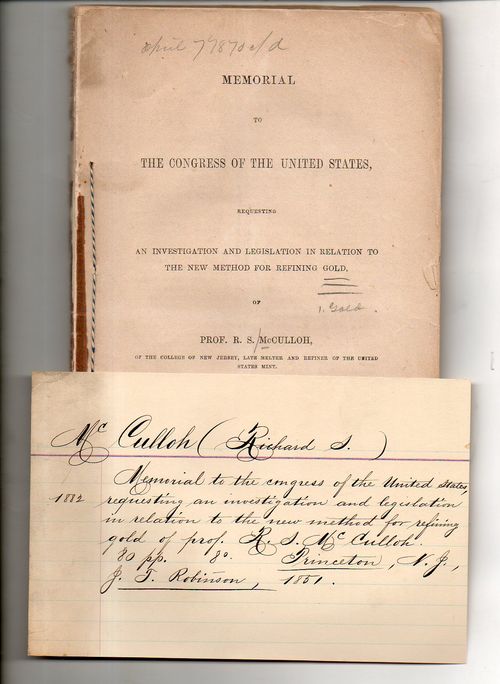 april 7 1870 c/d
MEMORIAL
TO
THE CONGRESS OF THE UNITED STATES,
REQUESTING
AN INVESTIGATION AND LEGISLATION IN RELATION TO
THE NEW METHOD FOR REFINING GOLD,
1. Gold.
OF
PROF. R. S. McCULLOH,
OF THE COLLEGE OF NEW JERSEY, LATE MELTER AND REFINER OF THE UNITED
STATES MINT.
Mc Culloh (Richard S.)
Memorial to the congress of the United States,
1882 requesting an investigation and legislation
in relation to the new method for refining
gold of prof. R. S. Mc Culloh.
80 pp. 8o. Princeton, N. J.,
J. T. Robinson, 1851.